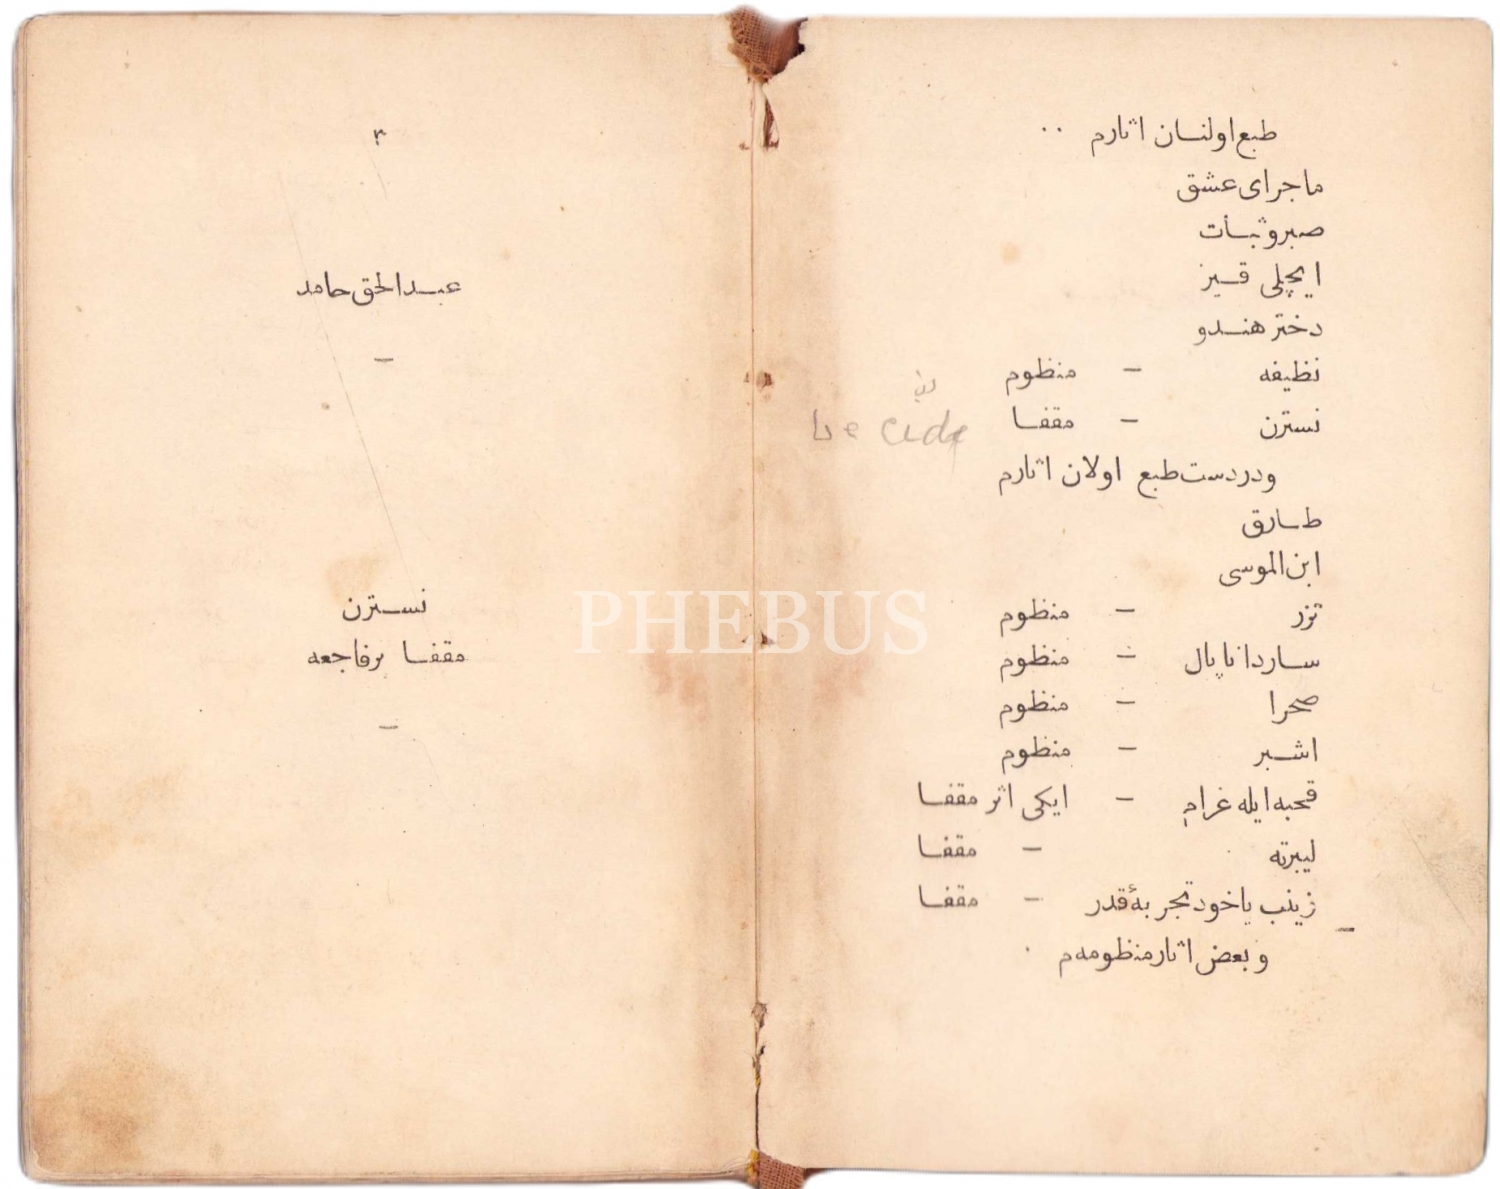 طبع اولنان اثارم
ماجرای عشق
صبر وثبات
ایچلی قیز
دختر هندو
نظیفه – منظوم
نسترن – مقفا
ودردست طبع اولان اثارم
طارق
ابن الموسی
تزر – منظوم
ساردانا پال – منظوم
صحرا – منظوم
اشبر – منظوم
قحبه ایله غرام – ایکی اثر مقفا
لیبرته – مقفا
زینب یاخود تجربهٔ قدر – مقفا
و بعض اثار منظومه م
٣
عبدالحق حامد
–
نسترن
مقفا بر فاجعه
–
PHEBUS